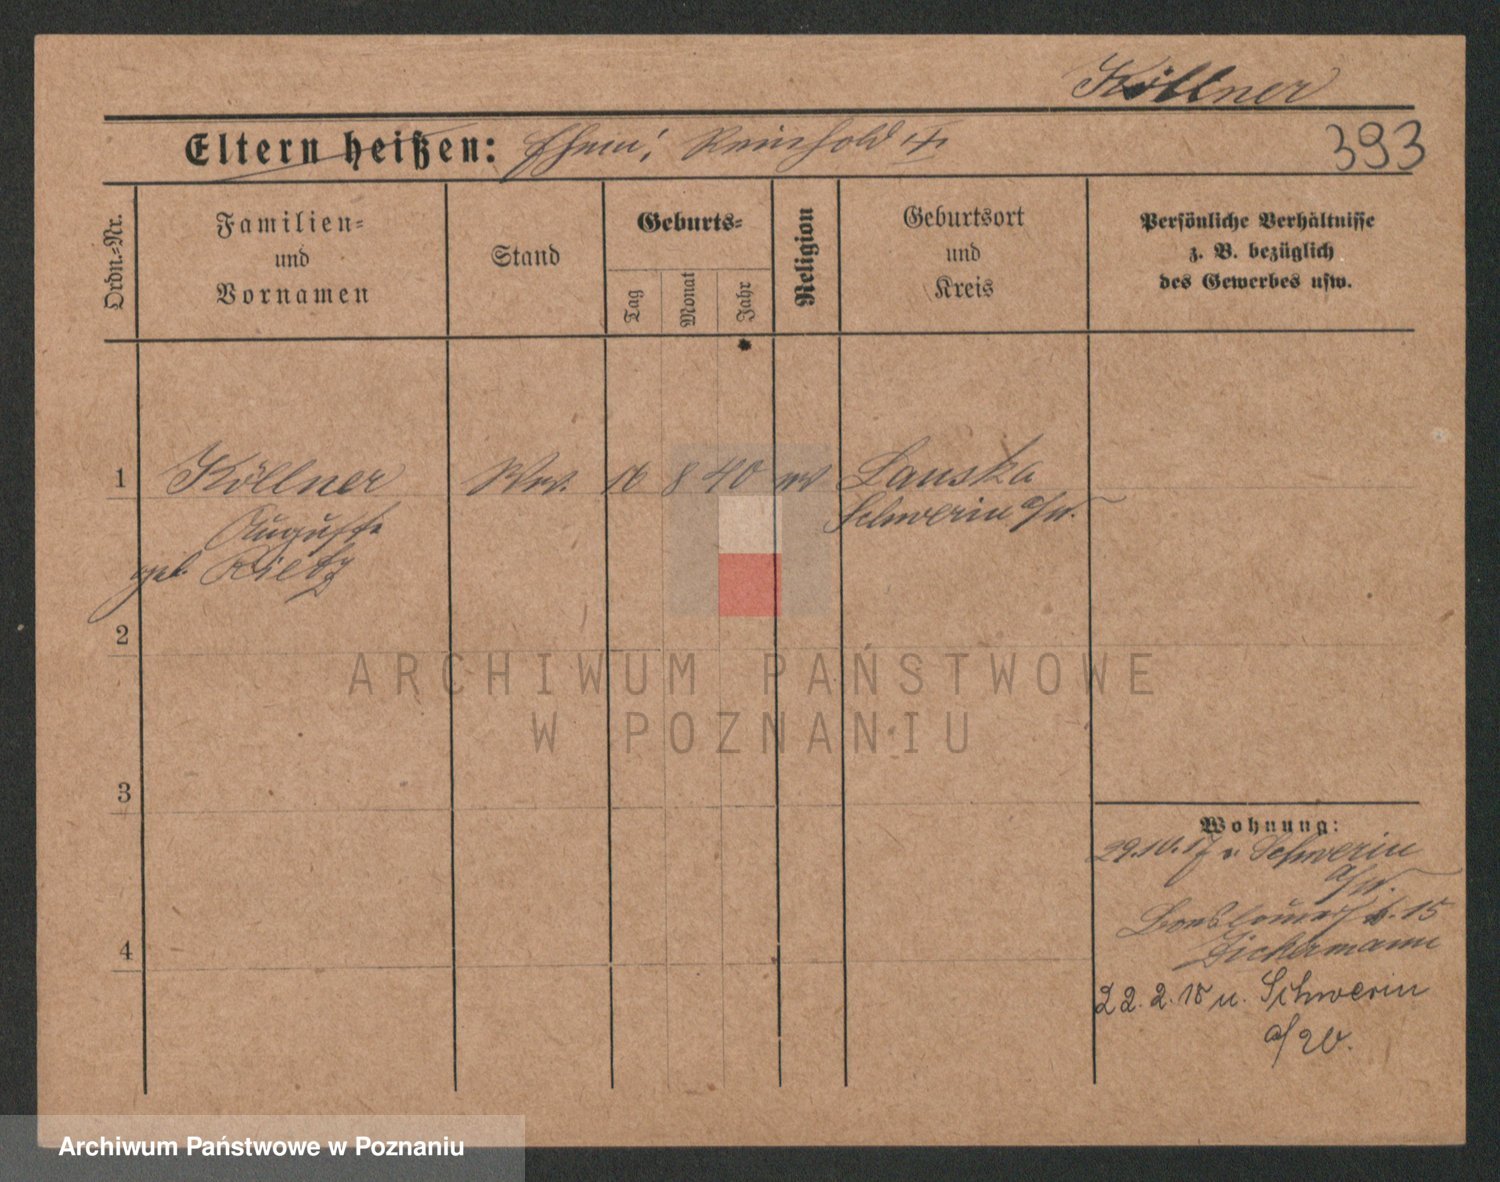 Köllner
Eltern heißen: Ehem: Reinhold
393
Ordn.=Nr.
Familien=
und
Vornamen
Stand
Geburts=
Tag
Monat
Jahr
Religion
Geburtsort
und
Kreis
Persönliche Verhältnisse
z. B. bezüglich
des Gewerbes usw.
1
Köllner
Ww.
16
8
40
Lauska
Auguste
Schwerin a/W.
geb. Rietz
2
ARCHIWUM PAŃSTWOWE
W POZNANIU
3
Wohnung:
29.10.17 v. Schwerin
a/W.
15
Dickermann
4
22.2.18 n. Schwerin
a/W.
Archiwum Państwowe w Poznaniu